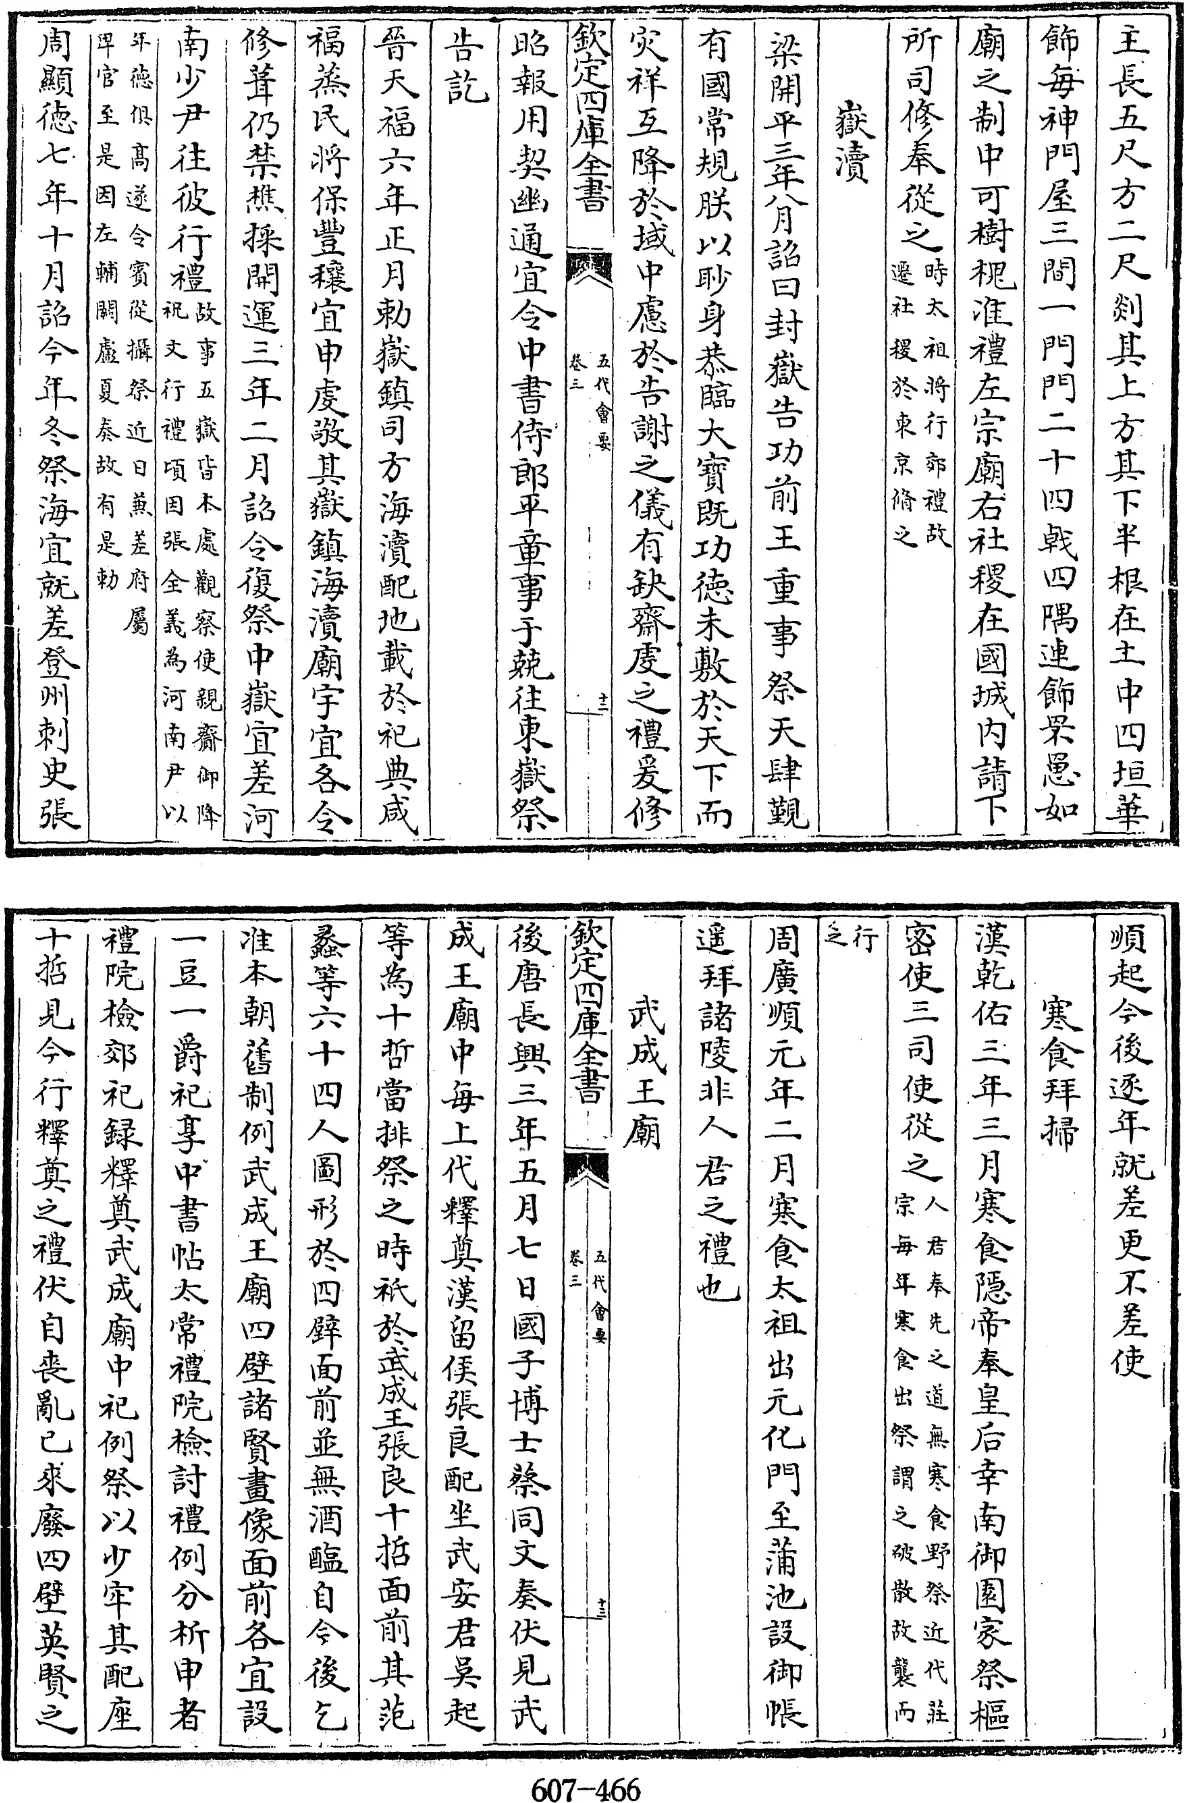 主長五尺方二尺剡其上方其下半根在土中四垣華
飾每神門屋三間一門門二十四戟四隅連飾罘罳如
廟之制中可樹槐准禮左宗廟右社稷在國城內請下
所司修奉從之時太祖將行郊禮故
遷社稷於東京脩之
嶽瀆
梁開平三年八月詔曰封嶽告功前王重事祭天肆覲
有國常規朕以眇身恭臨大寶既功德未敷於天下而
災祥互降於域中慮於告謝之儀有缺齋虔之禮爰修
欽定四庫全書
五代會要
卷三
十二
昭報用契幽通宜令中書侍郎平章事于兢往東嶽祭
告訖
晉天福六年正月勅嶽鎮司方海瀆配地載於祀典咸
福蒸民將保豐穰宜申虔敬其嶽鎮海瀆廟宇宜各令
修葺仍禁樵採開運三年二月詔令復祭中嶽宜差河
南少尹往彼行禮故事五嶽皆本處觀察使親齋御降
祝文行禮頃因張全義為河南尹以
年德俱髙遂令賓從攝祭近日兼差府屬
卑官至是因左輔闕盧夏奏故有是勅
周顯德七年十月詔今年冬祭海宜就差登州刺史張
順起今後逐年就差更不差使
寒食拜掃
漢乾佑三年三月寒食隱帝奉皇后幸南御園家祭樞
密使三司使從之人君奉先之道無寒食野祭近代莊
宗每年寒食出祭謂之破散故襲而
行
之
周廣順元年二月寒食太祖出元化門至蒲池設御帳
遥拜諸陵非人君之禮也
武成王廟
欽定四庫全書
五代會要
卷三
十三
後唐長興三年五月七日國子博士蔡同文奏伏見武
成王廟中每上代釋奠漢留侯張良配坐武安君吳起
等為十哲當排祭之時祇於武成王張良十哲面前其范
蠡等六十四人圖形於四壁面前並無酒醢自今後乞
准本朝舊制例武成王廟四壁諸賢畫像面前各宜設
一豆一爵祀享中書帖太常禮院檢討禮例分析申者
禮院檢郊祀録釋奠武成廟中祀例祭以少牢其配座
十哲見今行釋奠之禮伏自喪亂已來廢四壁英賢之
607-466